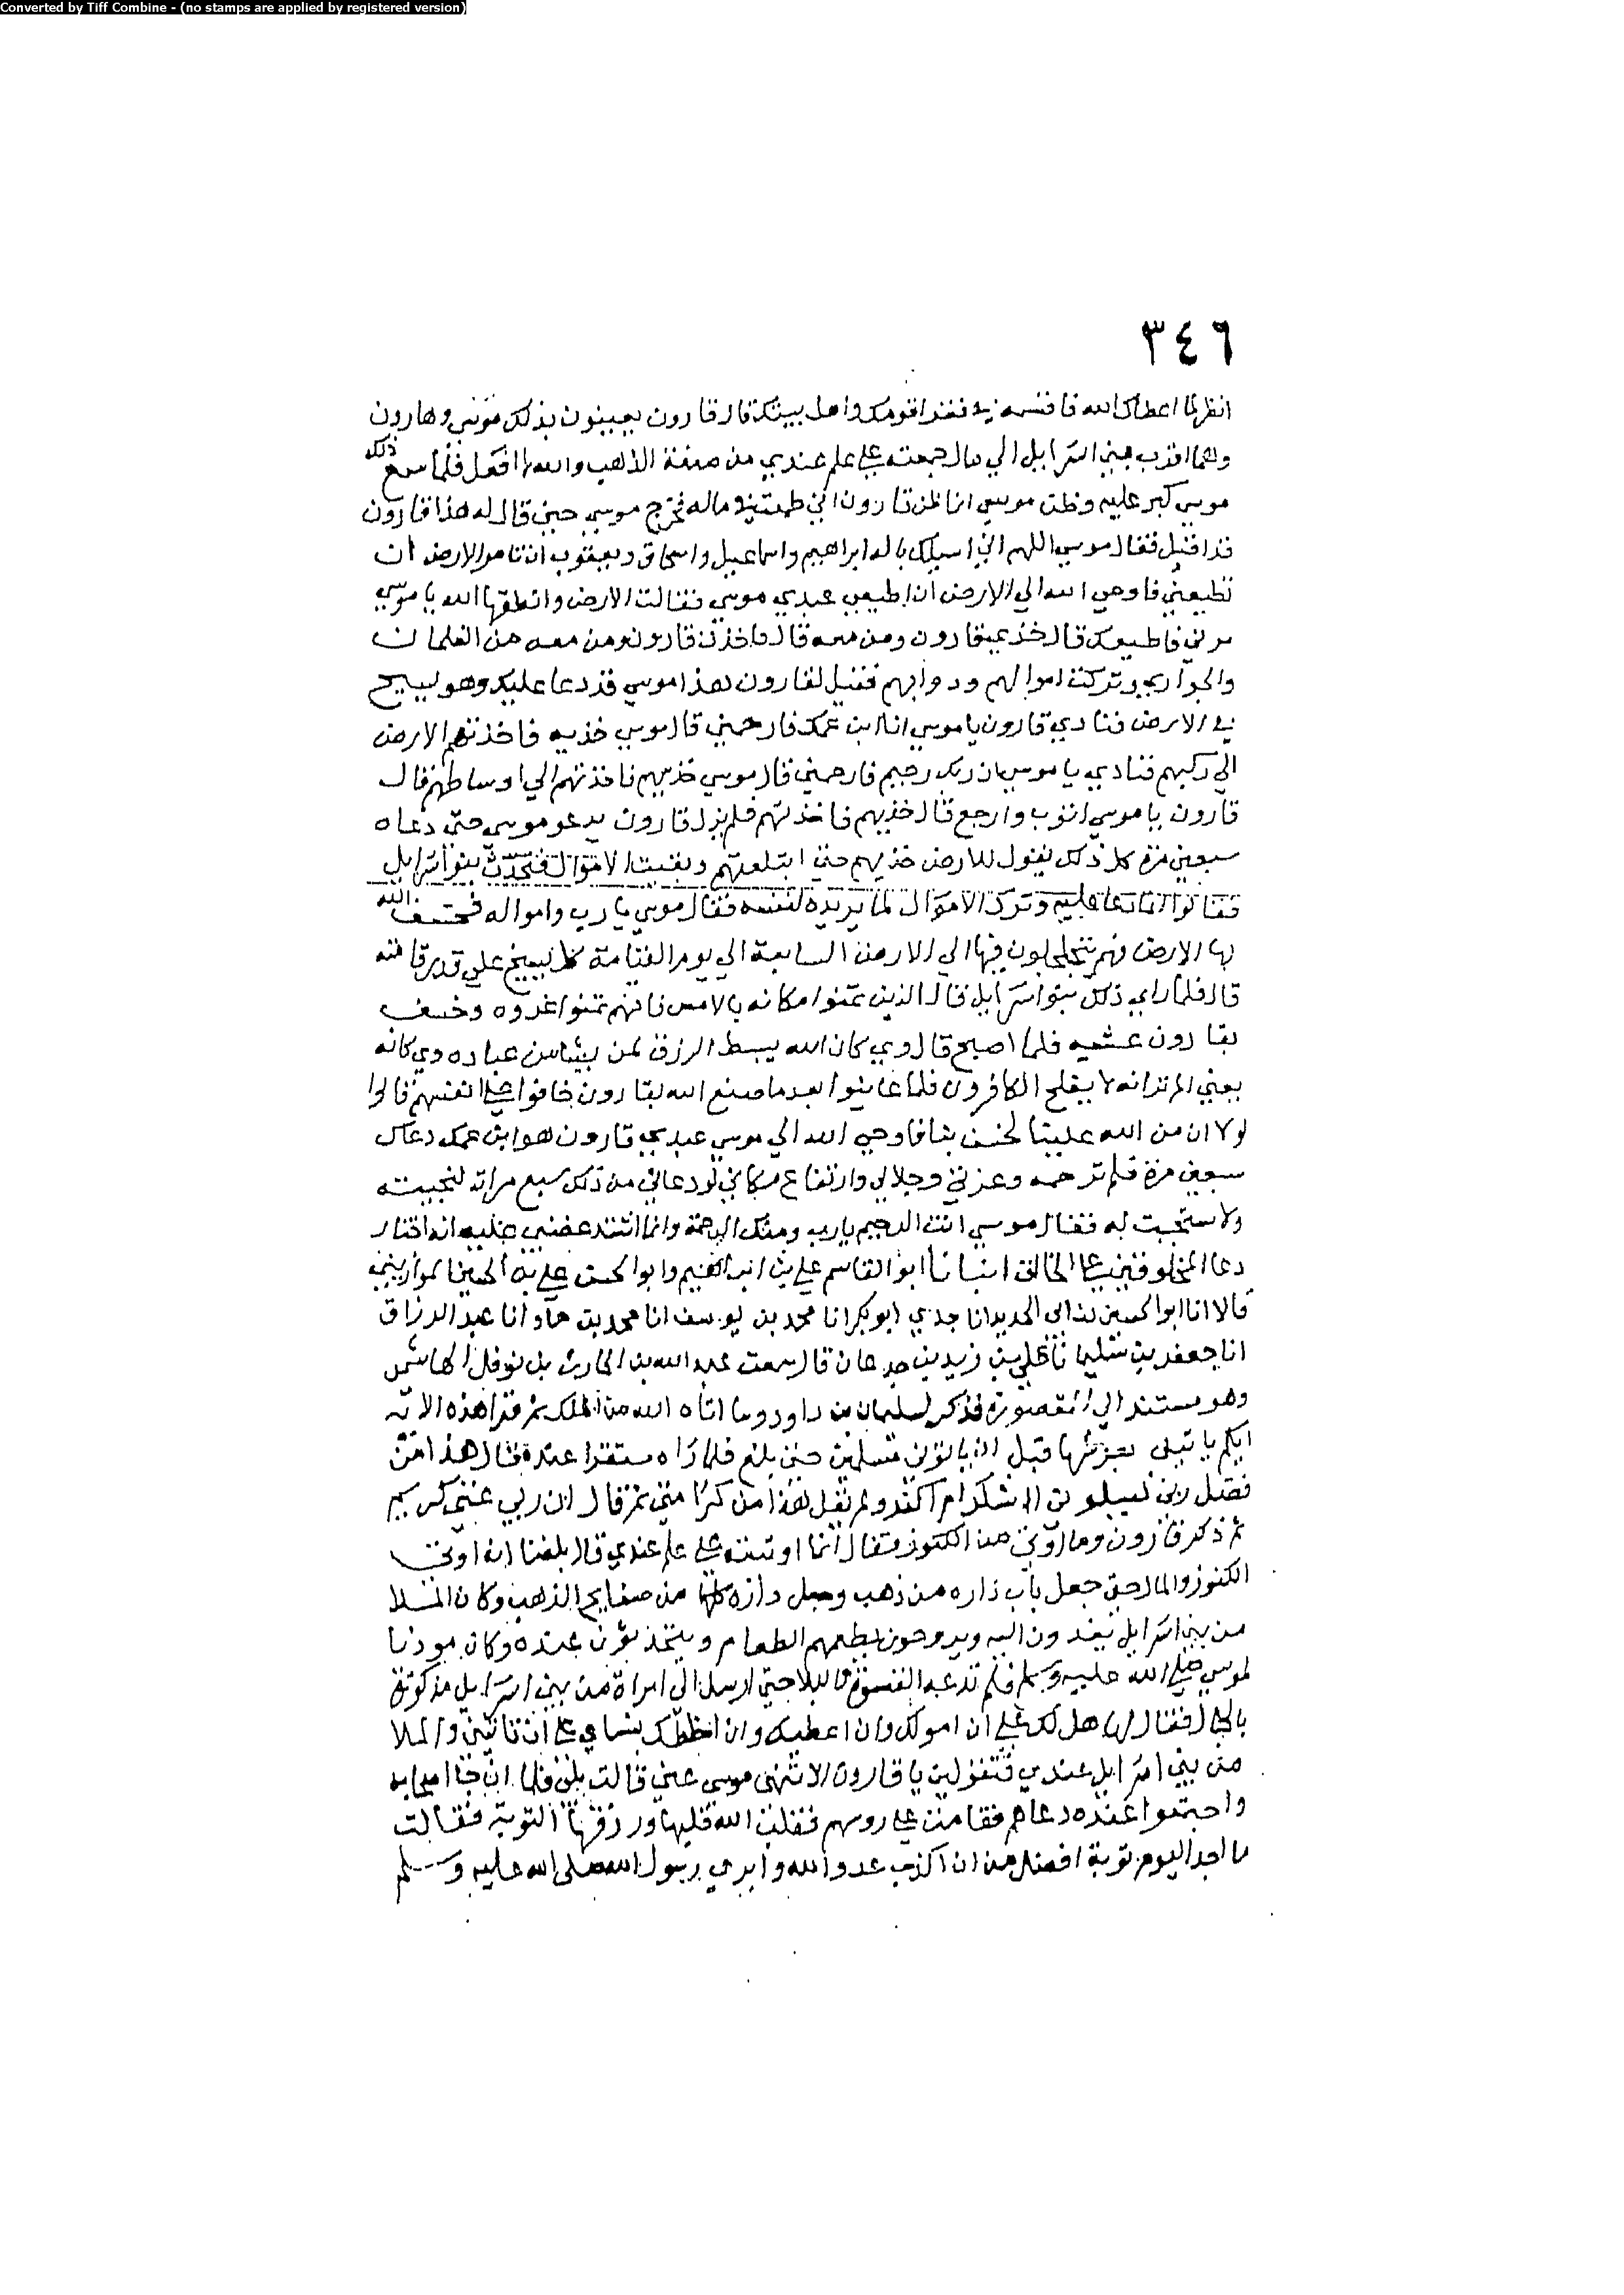 Converted by Tiff Combine - (no stamps are applied by registered version)
٣٤٦
انظر لما اعطاك الله فاقسمه في فقرا قومك واهل بيتك قال قارون يعيبنون بذلك موسى وهارون
وهما اقرب بني اسرايل الي مال جمعته علي علم عندي من صنعة الذهب والله لا افعل فلما سمع ذلك
موسي كبر عليه وظن موسي انما ظن قارون اني طمعت في ماله فخرج موسي حين قال له هذا قارون
قد اقبل فقال موسي اللهم اني اسيلك باله ابراهيم واسماعيل واسحاق ويعقوب ان تامر الارض ان
تطيعني فاوحي الله الي الارض ان اطيعي عبدي موسي فقالت الارض وانطقها الله يا موسي
مرني فاطيعك قال خذي قارون ومن معه قال فاخذت قارون ومن معه من الغلمان
والجواري وتركت اموالهم ودوابهم فقيل لقارون هذا موسي قد دعا عليك وهو يسيح
في الارض فنادي قارون يا موسي انا ابن عمك فارحمني قال موسي خذيه فاخذتهم الارض
الي ركبهم فنادي يا موسي ان ربك رحيم فارحمني قال موسي خذيهم فاخذتهم الي اوساطهم قال
قارون يا موسي اتوب وارجع قال خذيهم فاخذتهم فلم يزل قارون يدعو موسي حتي دعاه
سبعين مرة كل ذلك يقول للارض خذيهم حتي ابتلعتهم وبقيت الاموال فتحدث بنو اسرايل
فقالوا انما دعا عليهم وترك الاموال لما يريده لنفسه فقال موسي يا رب وامواله فخسف الله
بها الارض فهم يتجلجلون فيها الي الارض السابعة الي يوم القيامة كل يوم علي قدر قامته
قال فلما راي ذلك بنو اسرايل قال الذين تمنوا مكانه بالامس فانهم تمنوا غدوه وخسف
بقارون عشيه فلما اصبح قال وي كان الله يبسط الرزق لمن يشا من عباده وي كانه
يعني الم تر انه لا يفلح الكافرون فلما عاينوا بعد ما صنع الله بقارون خافوا علي انفسهم قالوا
لولا ان من الله علينا لخسف بنا فاوحي الله الي موسي عبدي قارون هو ابن عمك دعاك
سبعين مرة فلم ترحمه وعزتي وجلالي وارتفاع مكاني لو دعاني من ذلك سبع مرات لنجيته
ولاستجبت له فقال موسي انت الرحيم يا رب ومنك الرحمة وانما اشتد غضبي عليه انه اختار
دعا المخلوقين علي الخالق انبانا ابو القاسم علي بن ابراهيم وابو الحسن علي بن الحسين الموازيني
قالا انا ابو الحسين بن ابي الحديد انا جدي ابو بكر انا محمد بن يوسف انا محمد بن حماد انا عبد الرزاق
انا جعفر بن سليمان نا علي بن زيد بن جدعان قال سمعت عبد الله بن الحارث بن نوفل الهاشمي
وهو مستند الي المقصورة فذكر لسليمان بن داود وما اتاه الله من الملك ثم قرا هذه الاية
ايكم ياتيني بعرشها قبل ان ياتوني مسلمين حتي بلغ فلما راه مستقرا عنده قال هذا من
فضل ربي ليبلوني ااشكر ام اكفر ولم يقل هذا من كرامتي ثم قال ان ربي غني كريم
ثم ذكر قارون وما اوتي من الكنوز فقال انما اوتيته علي علم عندي قال بلغنا انه اوتي
الكنوز والمال حتي جعل باب داره من ذهب وجعل داره كلها من صفايح الذهب وكان الملا
من بني اسرايل يغدون اليه ويروحون يطعمهم الطعام ويتحدثون عنده وكان موذيا
لموسي صلي الله عليه وسلم فلم تدعه القسوة والبلا حتي ارسل الي امراة من بني اسرايل مذكورة
بالجمال فقال لها هل لك علي ان امولك وان اعطيك وان اخلطك بنساي علي ان تاتيني والملا
من بني اسرايل عندي فتقولين يا قارون الا تنهى موسى عني قالت بلى فلما ان جا اصحابه
واجتمعوا عنده دعاها فقامت علي روسهم فقلب الله قلبها ورزقها التوبة فقالت
ما اجد اليوم توبة افضل من ان اكذب عدو الله وابري رسول الله صلى الله عليه وسلم